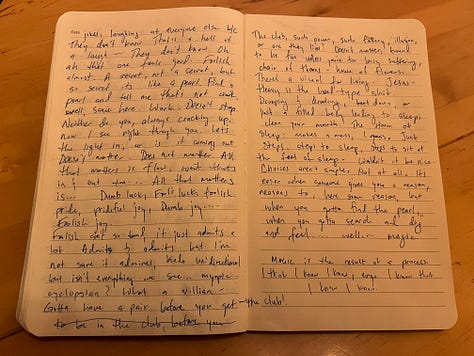 jokes, laughing at everyone else. We
They don't know. That's a hell of
a laugh — They don't know. Oh
ah that one feels good. Foolish
almost. A secret, not a secret, but
so secret its like a pearl. But a
pearl and tell me that's not
well. Work. Doesn't stop
Neither do you, always cracking up.
now I see right through you. Lets
the light in, or is it coming out
Doesn't matter. Does not matter. All
that matters is flow, want
in? out ... All that matters
is... Dumb luck, Fools lucks foolish
pride, prideful joy, Dumb joy...
Foolish joy.
Foolish isn't so bad it just admits a
lot. Admits & admits but I'm
not sure it admires. Kinda Unidirectional
but isn't everything we see... myopic
cyclopsian? What a villian-
Gotta have a pair before you get
to be in the club, before you
the club!
The club, such power, such fallacy, illusion,
or are they lies? Doesn't matter, bound
to be fun when you're busy suffering,
chair of thorns, house of flowers.
There's a rival for living. Jesus-
theory is the hard type shit.
Dumping & drooling, beat down, or
just a tilted body leading to sleep.
clear your mouth. The stem of
sleep. makes a mess, I guess, Just
steps, steps to sleep, steps to sit at
the feet of sleep. Wouldn't it be nice.
Choices aren't simple. Not at all, Its
easier when someone gives you a reason,
reasons to, here some reason, but
when you gotta find the pearl,
when you gotta search and dig
and feel ... well... magic
Magic is the result of a process
I that I know I know, I know that
I know I know.